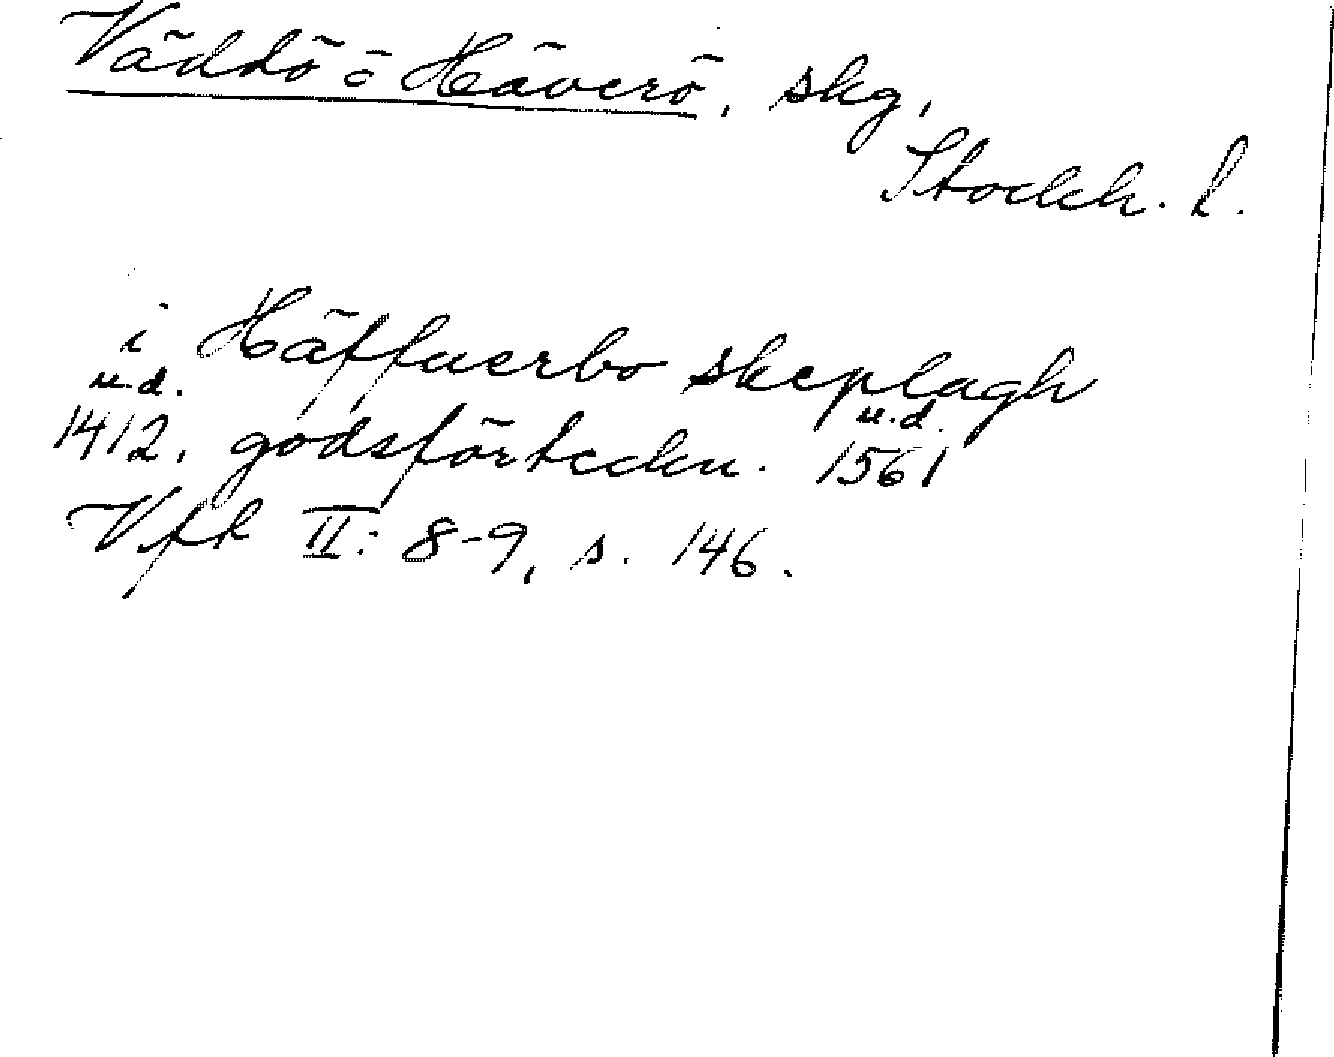 Väddö o Häverö, skg,
Stockh. l.
i Häffuerbo skeplagh
u.d. u.d.
1412. godsförteckn. 1561
Vfk II: 8-9, s. 146.